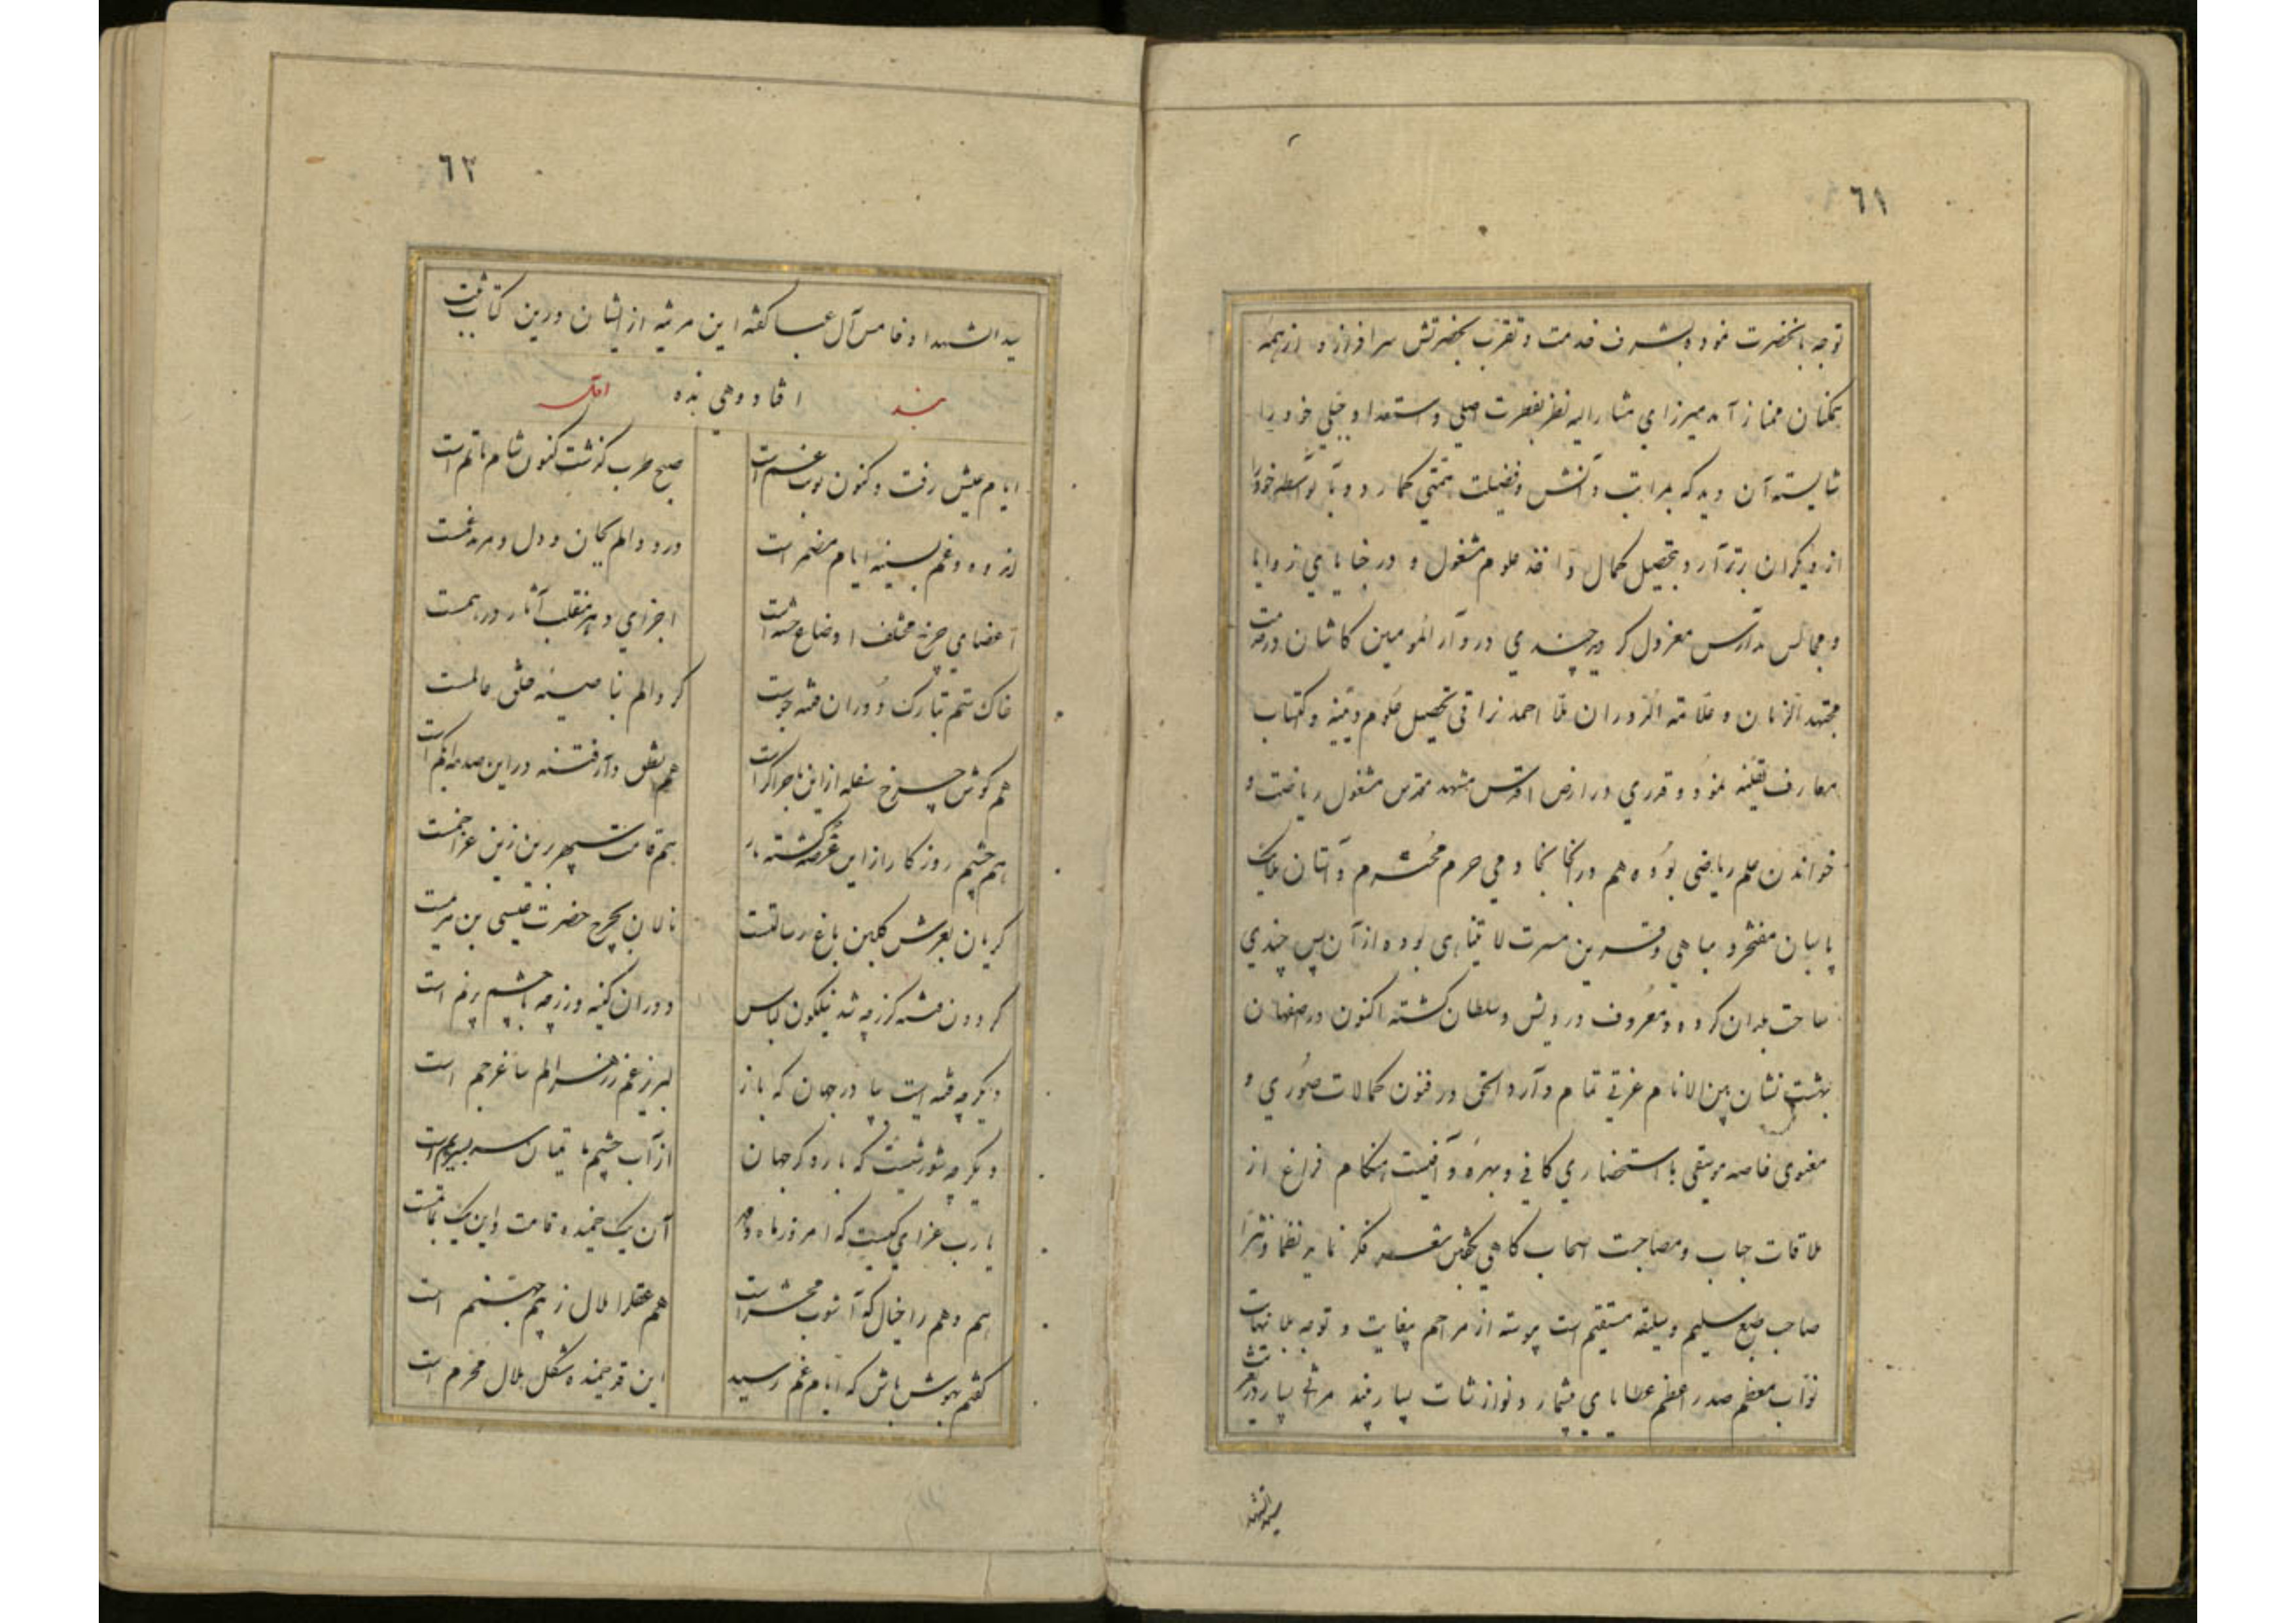 ٦١
توجه بانحضرت نموده بشرف خدمت و تقرب بحضرتش سرافراز و از همه
همکنان ممتاز آمد میرزای مشارالیه نظر بفطرت اصلی و استعداد جبلی خود را
شایسته آن دید که بمراتب دانش و فضیلت همتی کمارد و بآنواسطه خود را
از دیکران برتر آرد بتحصیل کمال و اخذ علوم مشغول و در خبایای زوایا
و مجالس مدارس معزول کردید چندی در دارالمومنین کاشان در خدمت
مجتهد الزمان و علامة الدوران ملا احمد نراقی تحصیل علوم دینیه و اکتساب
معارف یقینیه نمود و قدری در ارض اقدس مشهد مقدس مشغول ریاضت و
خواندن علم ریاضی بوده هم در آنجا بخادمی حرم محترم و آستان ملایک
پاسبان مفتخر و مباهی و قرین مسرت لایتناهی بوده از آن پس چندی
سیاحت بلدان کرده و معروف درویش و سلطان کشته اکنون در اصفهان
بهشت نشان بین الانام عزتی تمام دارد الحق در فنون کمالات صوری و
معنوی خاصه موسیقی با استحضاری کافی و بهره وافیست هنکام فراغ از
ملاقات احباب و مصاحبت اصحاب کاهی بکفتن شعر فکر نماید نظما و نثرا
صاحب طبع سلیم و سلیقه مستقیم است پیوسته از مراحم بیغایت و توجه بلا نهایت
نواب معظم صدر اعظم عطایای بیشمار و نوازشات بسیار بیند مرثی بسیار در تعزیت
سید الشهدا
٦٢
سید الشهدا و خامس آل عبا کفته این مرثیه از ایشان درین کتاب ثبت
افتاد و هی هذه
بند اول
ایام عیش رفت و کنون نوبت غم است صبح طرب کذشت کنون شام ماتم است
اندوه و غم بسینه ایام مضمر است درد و الم بجان و دل دهر مدغمست
اعضای چرخ مختلف اوضاع خسته است اجزای دهر منقلب آثار درهمست
خاک ستم بتارک دوران فتنه جوست کرد الم بناصیه خلق عالمست
هم کوش چرخ سفله از این ماجرا کر است هم نطق دار فتنه در این صدمه ابکم است
هم چشم روزکار از این غرصه کشته تار هم قامت سپهر برین زین عزا خمست
کریان بعرش کلبن باغ رسالتست نالان بچرخ حضرت عیسی بن مریمست
کردون فتنه کر ز چه شد نیلکون لباس دوران کینه ورز چه با چشم پرنم است
دیکر چه فتنه ایست بپا در جهان که باز لبریز غم ز زهر الم ساغر جم است
دیکر چه شورشیست که بار دکر جهان از آب چشم ماتمیان سر بسر یم است
یا رب عزای کیست که امروز ماه و مهر آن یک خمیده قامت و این یک بماتمست
هم وهم را خیال که آشوب محشر است هم عقل را ملال ز بیم جهنم است
کفتم بهوش باش که ایام غم رسید این قد خمیده شکل هلال محرم است